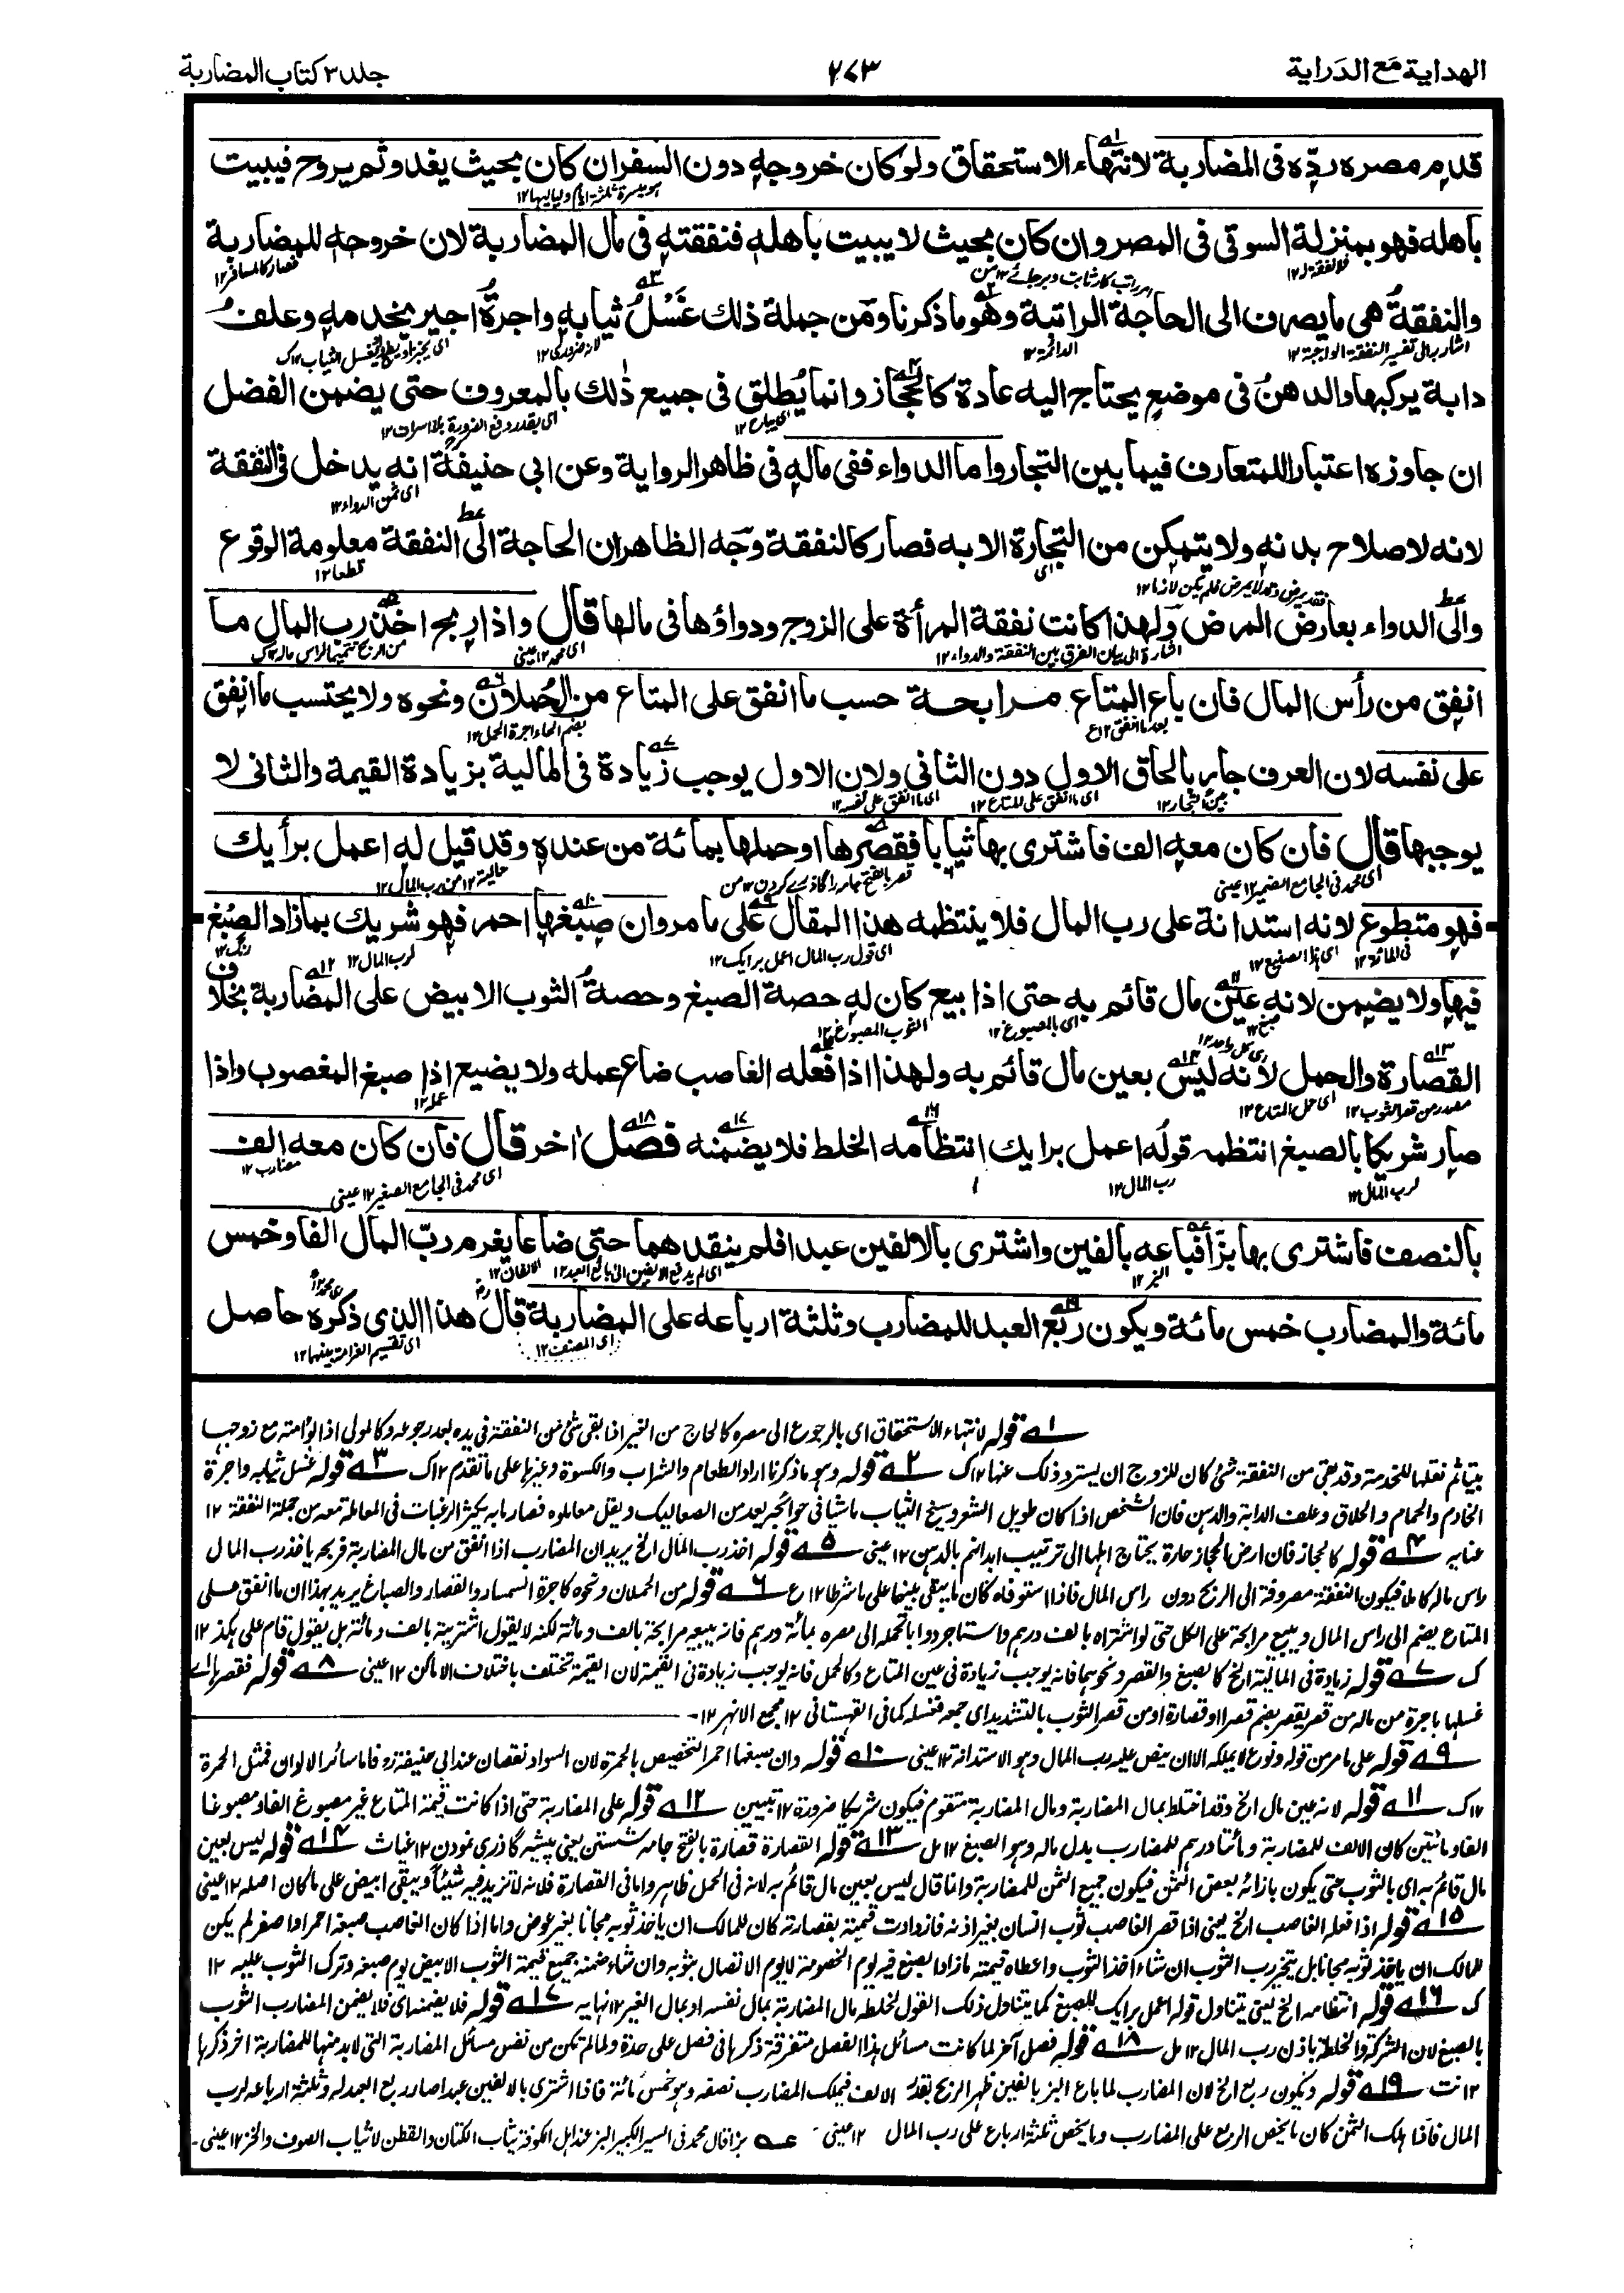 الهداية مع الدراية
٢٧٣
جلد ٣ كتاب المضاربة
قدم مصره ردّه فى المضاربة لانتهاء الاستحقاق ولو كان خروجه دون السفر ان كان بحيث يغدو ثم يروح فيبيت
باهله فهو بمنزلة السوقى فى المصر وان كان بحيث لا يبيت باهله فنفقته فى مال المضاربة لان خروجه للمضاربة
والنفقة هى ما يصرف الى الحاجة الراتبة وهو ما ذكرنا ومن جملة ذلك غَسْلُ ثيابه واجرةُ اجير يخدمه وعلفُ
دابة يركبها والدهنُ فى موضع يحتاج اليه عادة كالحجاز وانما يُطلق فى جميع ذٰلك بالمعروف حتى يضمن الفضل
ان جاوزه اعتبارا للمتعارف فيما بين التجار واما الدواء ففى ماله فى ظاهر الرواية وعن ابى حنيفة انه يدخل فى النفقة
لانه لاصلاح بدنه ولا يتمكن من التجارة الا به فصار كالنفقة وجه الظاهر ان الحاجة الى النفقة معلومة الوقوع
والى الدواء بعارض المرض ولهذا كانت نفقة المرأة على الزوج ودواؤها فى مالها قال واذا ربح اخذ رب المال ما
انفق من رأس المال فان باع المتاع مرابحة حسب ما انفق على المتاع من الحُملان ونحوه ولا يحتسب ما انفق
على نفسه لان العرف جارٍ بالحاق الاول دون الثانى ولان الاول يوجب زيادة فى المالية بزيادة القيمة والثانى لا
يوجبها قال فان كان معه الف فاشترى بها ثيابا فقصرها او حملها بمائة من عنده وقد قيل له اعمل برأيك
فهو متطوع لانه استدانة على رب المال فلا ينتظمه هذا المقال على ما مر وان صبغها احمر فهو شريك بما زاد الصبغ
فيها ولا يضمن لانه عين مال قائم به حتى اذا بيع كان له حصة الصبغ وحصةُ الثوب الابيض على المضاربة بخلاف
القصارة والحمل لانه ليس بعين مال قائم به ولهذا اذا فعله الغاصب ضاع عمله ولا يضيع اذا صبغ المغصوب واذا
صار شريكا بالصبغ انتظمه قولُه اعمل برايك انتظامه الخلط فلا يضمنه فصل اٰخر قال فان كان معه الف
بالنصف فاشترى بها بزّا فباعه بالفين واشترى بالالفين عبدا فلم ينقدهما حتى ضاعا يغرم ربّ المال الفا وخمس
مائة والمضارب خمس مائة ويكون ربع العبد للمضارب وثلثة ارباعه على المضاربة قال هذا الذى ذكره حاصل
١ قوله لانتهاء الاستحقاق اى بالرجوع الى مصره كالحاج من الغير اذا بقى شئ من النفقة فى يده بعد رجوعه وكالمولى اذا بوّا امته مع زوجها
بيتا ثم نقلها للخدمة وقد بقى من النفقة شئ كان للزوج ان يسترد ذلك عنها ١٢ ك ٢ قوله وهو ما ذكرنا اراد الطعام والشراب والكسوة وغيرها على ما تقدم ١٢ ك ٣ قوله غسل ثيابه واجرة
الخادم والحمام والحلاق وعلف الدابة والدهن فان الشخص اذا كان طويل الشعر وسخ الثياب ماشيا فى حوائجه يعد من الصعاليك ويقل معاملوه فصار ما به يكثر الرغبات فى المعاملة معه من جملة النفقة ١٢
عناية ٤ قوله كالحجاز فان ارض الحجاز حارة يحتاج اهلها الى ترتيب ابدانهم بالدهن ١٢ عينى ٥ قوله اخذ رب المال الخ يريد ان المضارب اذا انفق من مال المضاربة فربح ياخذ رب المال
راس ماله كاملا فيكون النفقة مصروفة الى الربح دون راس المال فاذا استوفاه كان ما يبقى بينهما على ما شرطا ١٢ ع ٦ قوله من الحملان ونحوه كاجرة السمسار والقصار والصباغ يريد بهذا ان ما انفق على
المتاع يضم الى راس المال ويبيع مرابحة على الكل حتى لو اشتراه بالف درهم واستاجر دوابا تحمله الى مصره بمائة درهم فانه يبيعه مرابحة بالف ومائة لكنه لا يقول اشتريته بالف ومائة بل يقول قام على بكذا ١٢
ك ٧ قوله زيادة فى المالية الخ كالصبغ والقصر ونحوهما فانه يوجب زيادة فى عين المتاع وكالحمل فانه يوجب زيادة فى القيمة لان القيمة تختلف باختلاف الاماكن ١٢ عينى ٨ قوله فقصرها اے
غسلها باجرة من ماله من قصر يقصر بضم قصرا او قصارة او من قصر الثوب بالتشديد اى جمعه فغسله كما فى القهستانى ١٢ مجمع الانهر ١٢
٩ قوله على ما مر من قوله ونوع لا يملكه الا ان ينص عليه رب المال وهو الاستدانة ١٢ عينى ١٠ قوله وان صبغها احمر التخصيص بالحمرة لان السواد نقصان عند ابى حنيفة رو فاما سائر الالوان فمثل الحمرة
١٢ ك ١١ قوله لانه عين مال الخ وقد اختلط بمال المضاربة ومال المضاربة متقوم فيكون شريكا ضرورة ١٢ تبيين ١٢ قوله على المضاربة حتى اذا كانت قيمة المتاع غير مصبوغ الفا ومصبوغا
الفا ومائتين كان الالف للمضاربة ومائتا درهم للمضارب بدل ماله وهو الصبغ ١٢ مل ١٣ قوله القصارة قصارة بالفتح جامه شستن يعنى پيشه گاذرى نمودن ١٢ غياث ١٤ قوله ليس بعين
مال قائم به اى بالثوب حتى يكون بازائه بعض الثمن فيكون جميع الثمن للمضاربة وانما قال ليس بعين مال قائم به لانه فى الحمل ظاهر واما فى القصارة فلانه لا تزيد فيه شيئا ويبقى ابيض على ما كان اصله ١٢ عينى
١٥ قوله اذا فعله الغاصب الخ يعنى اذا قصر الغاصب ثوب انسان بغير اذنه فازدادت قيمته بقصارته كان للمالك ان ياخذ ثوبه مجانا بغير عوض واما اذا كان الغاصب صبغه احمر او اصفر لم يكن
للمالك ان ياخذ ثوبه مجانا بل يتخير رب الثوب ان شاء اخذ الثوب واعطاه قيمة ما زاد الصبغ فيه يوم الخصومة لا يوم الاتصال بثوبه وان شاء ضمنه جميع قيمة الثوب الابيض يوم صبغه وترك الثوب عليه ١٢
ك ١٦ قوله انتظامه الخ يعنى يتناول قوله اعمل برايك للصبغ كما يتناول ذلك القول لخلطه مال المضاربة بمال نفسه او بمال الغير ١٢ نهاية ١٧ قوله فلا يضمنه اى فلا يضمن المضارب الثوب
بالصبغ لان الشركة والخلطة باذن رب المال ١٢ مل ١٨ قوله فصل آخر لما كانت مسائل هذا الفصل متفرقة ذكرها فى فصل على حدة ولما لم تكن من نفس مسائل المضاربة التى لابد منها للمضاربة اخر ذكرها
١٢ نت ١٩ قوله ويكون ربع الخ لان المضارب لما باع البز بالفين ظهر الربح بقدر الالف فيملك المضارب نصفه وهو خمس مائة فاذا اشترى بالالفين عبدا صار ربع العبد له وثلثة ارباعه لرب
المال فاذا هلك الثمن كان ما يخص الربع على المضارب وما يخص ثلثة ارباع على رب المال ١٢ عينى عه بزا قال محمد فى السير الكبير البز عند اهل الكوفة ثياب الكتان والقطن لا ثياب الصوف والخز ١٢ عينى